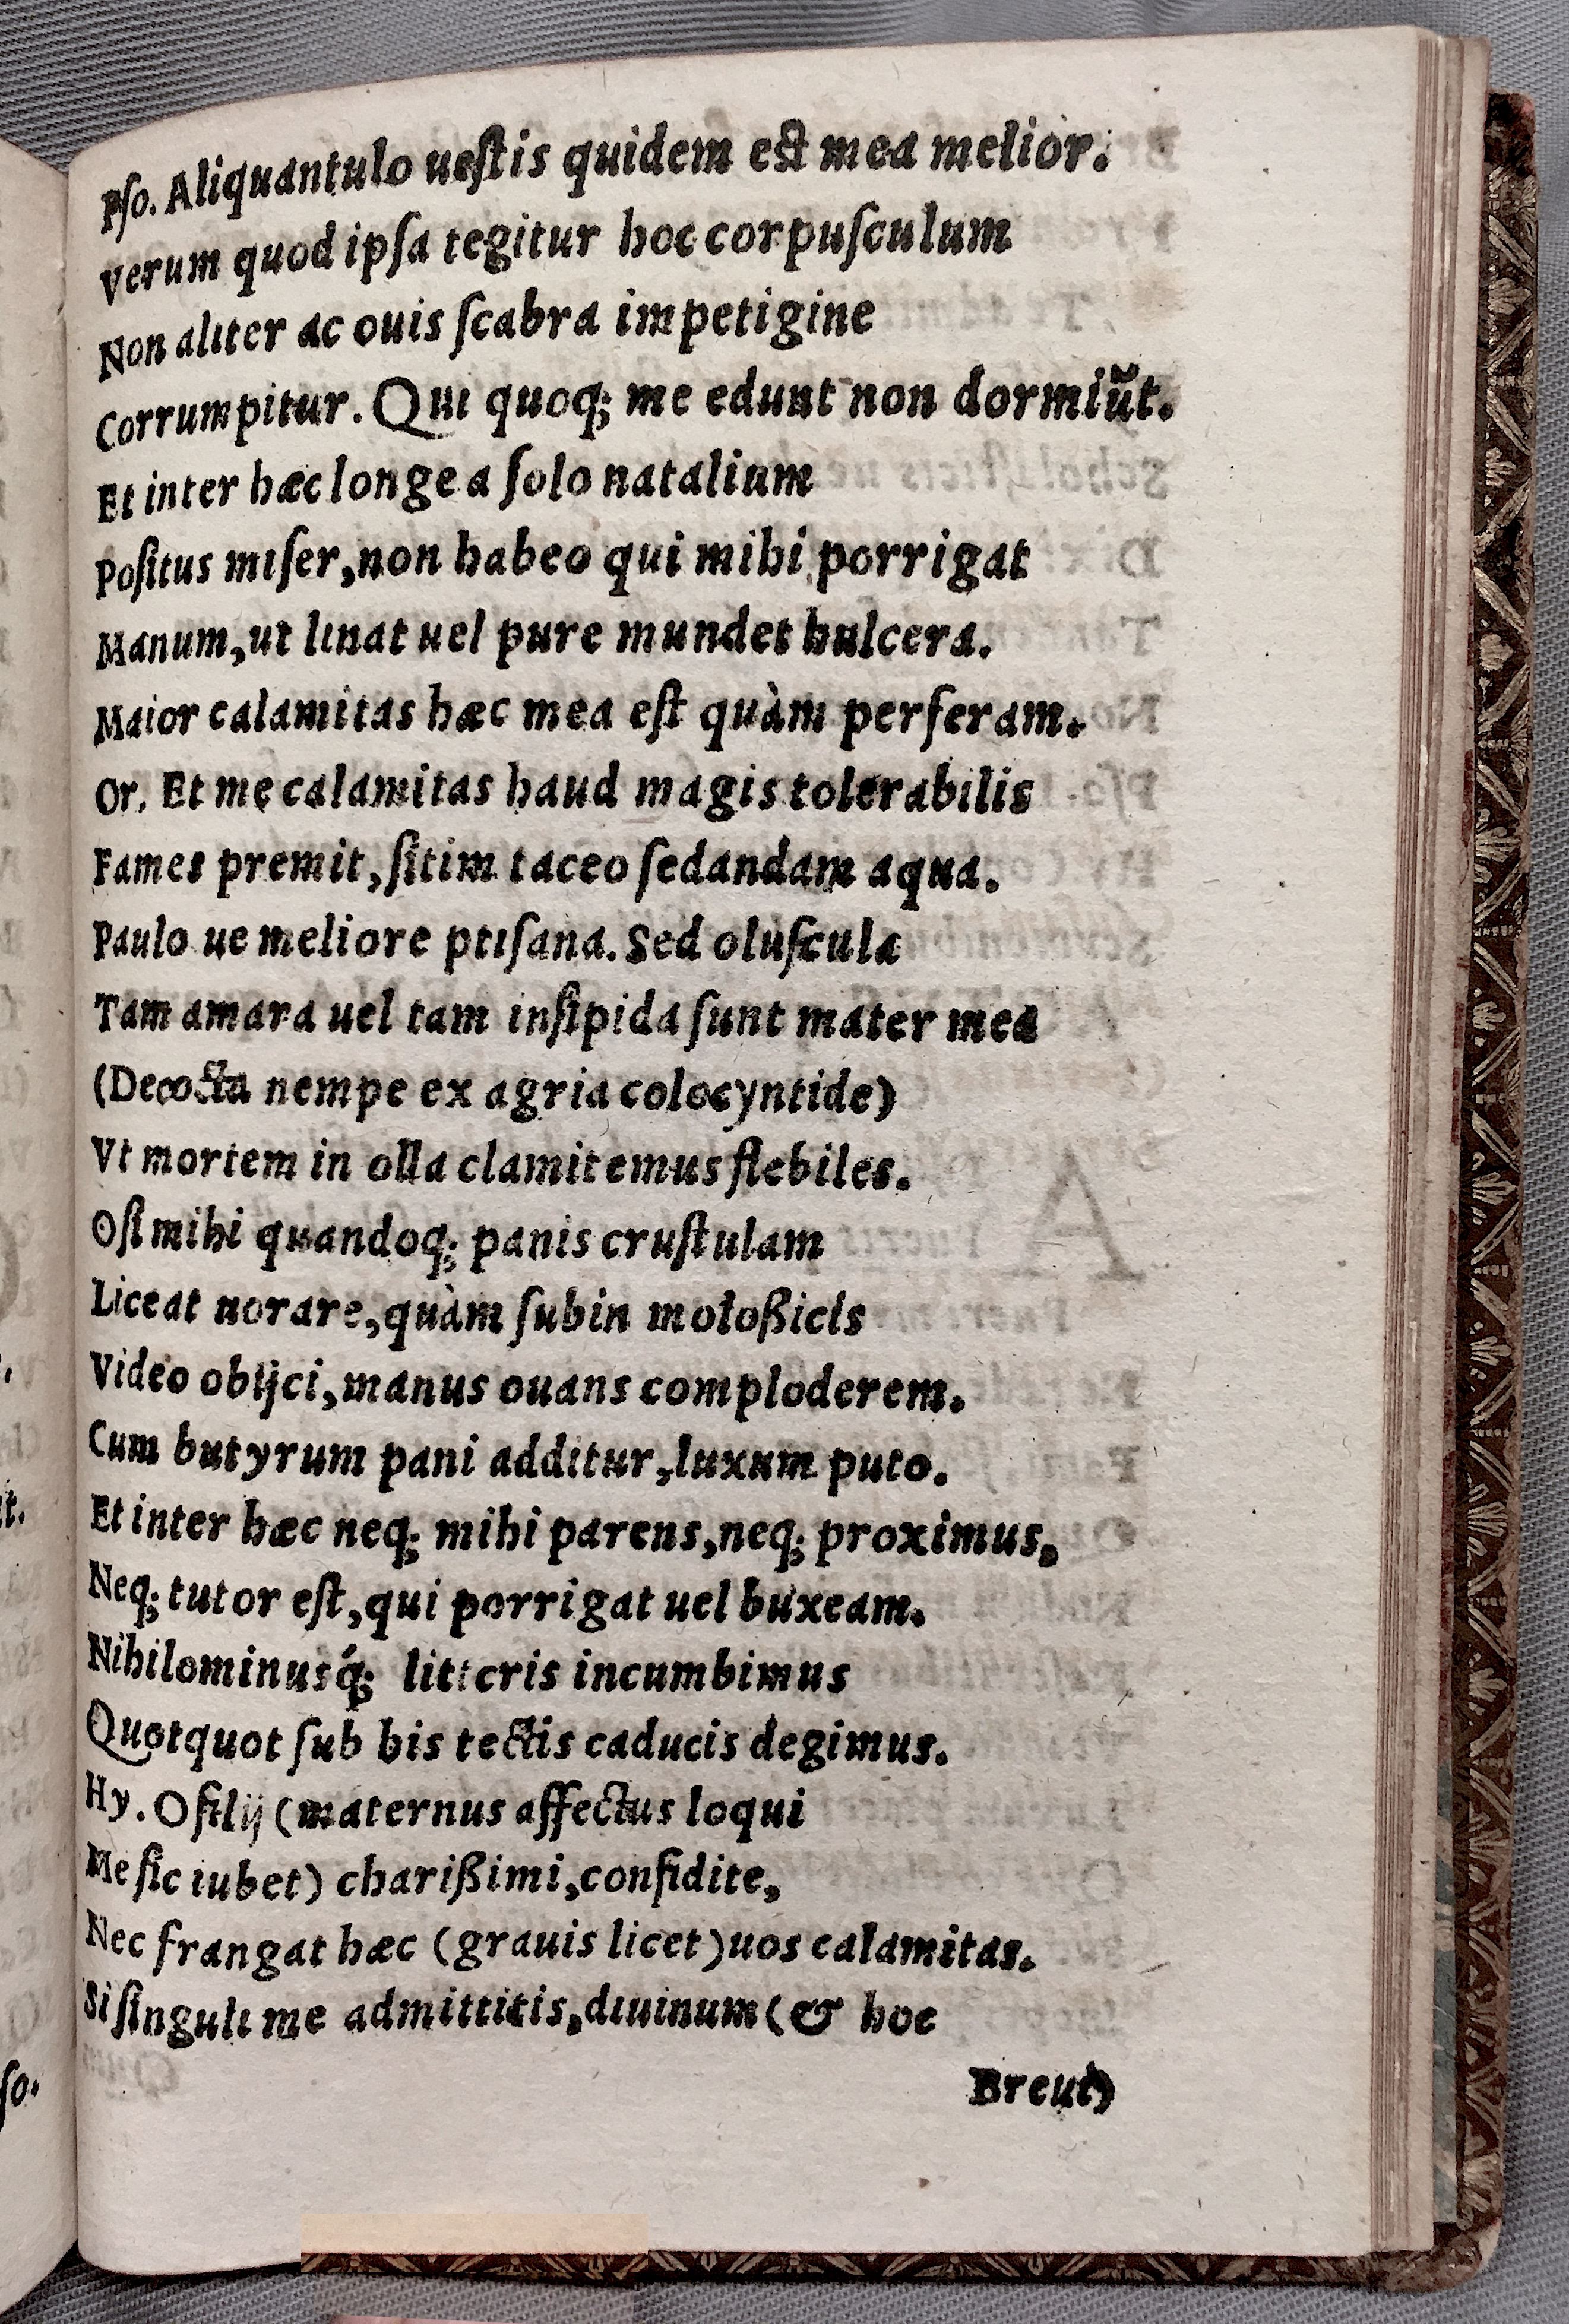 Pſo. Aliquantulo ueſtis quidem est mea melior.
Verum quod ipſa tegitur hoc corpuſculum
Non aliter ac ouis ſcabra impetigine
Corrumpitur. Qui quoq; me edunt non dormiũt.
Et inter hæc longe a ſolo natalium
Poſitus miſer, non habeo qui mihi porrigat
Manum, ut linat uel pure mundet hulcera.
Maior calamitas hæc mea eſt quàm perferam.
Or. Et me calamitas haud magis tolerabilis
Fames premit, ſitim taceo ſedandam aqua.
Paulo ue meliore ptiſana. Sed oluſcula
Tam amara uel tam inſipida ſunt mater mea
(Decocta nempe ex agria colocyntide)
Vt mortem in olla clamitemus flebiles.
O ſi mihi quandoq; panis cruſtulam
Liceat uorare, quàm ſubin moloßicis
Video obijci, manus ouans comploderem.
Cum butyrum pani additur, luxum puto.
Et inter hæc neq; mihi parens, neq; proximus,
Neq; tutor eſt, qui porrigat uel buxeam.
Nihilominusq́; litteris incumbimus
Quotquot ſub his tectis caducis degimus.
Hy. O filij (maternus affectus loqui
Me ſic iubet) charißimi, confidite,
Nec frangat hæc (grauis licet) uos calamitas.
Si ſinguli me admittitis, diuinum (& hoc
Breui)
ſo.